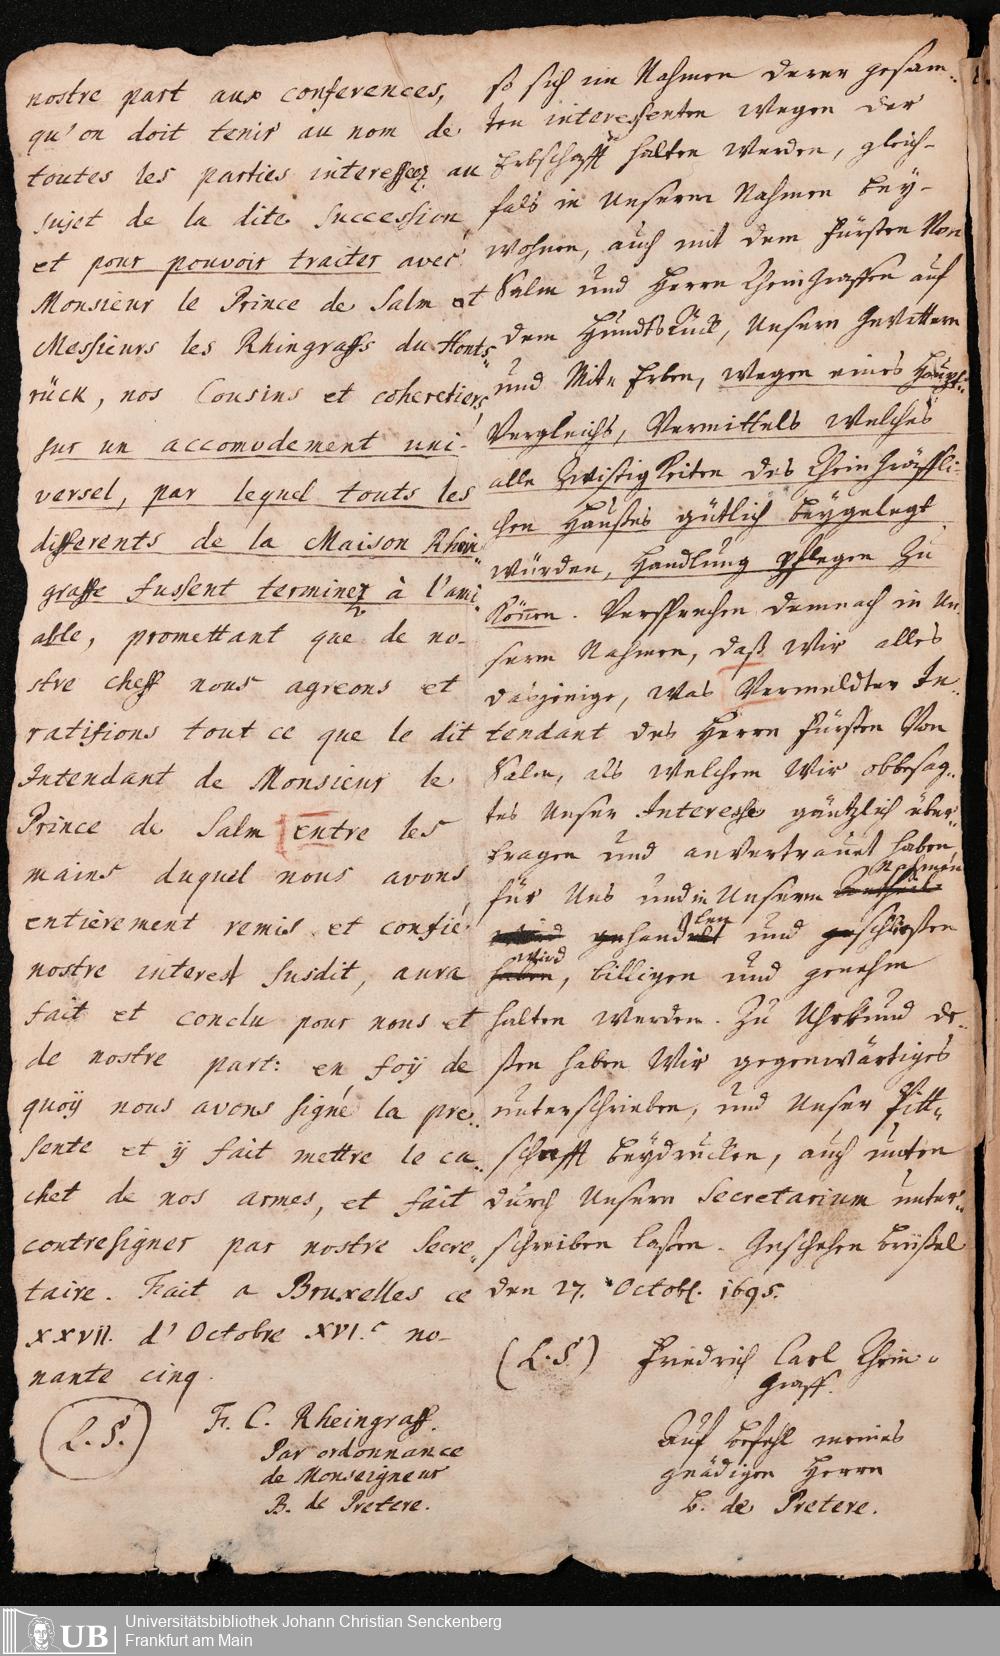 nostre part aux conferences,
qu'on doit tenir au nom de
toutes les parties interesseez au
sujet de la dite Succession,
et pour pouvoir traiter avec
Monsieur le Prince de Salm et
Messieurs les Rhingraffs du Honts-
rück, nos Cousins et coheretiers
sur un accomodement uni-
versel, par lequel touts les
differents de la Maison Rhin
graffe fussent terminez à l'ami-
able, promettant que de no-
stre cheff nous agreons et
ratifions tout ce que le dit
Intendant de Monsieur le
Prince de Salm entre les
mains duquel nous avons
entièrement remis et confié
nostre interest susdit, aura
fait et conclu pour nous et
de nostre part: en foÿ de
quoÿ nous avons signé la pre-
sente et ÿ fait mettre le ca-
chet de nos armes, et fait
contresigner par nostre Secre-
taire. Fait a Bruxelles ce
XXVII. d'Octobre XVI.c no-
nante cinq.
(L.S.)
F. C. Rheingraff.
Par ordonnance
de Monseigneur
B. de Pretere.
so sich im Nahmen derer gesam-
ten interessenten wegen der
Erbschafft halten werden, gleich-
fals in Unserm Nahmen bey-
wohnen, auch mit dem Fürsten Von
Salm und Herrn Rheingraffen auf
dem Hundtsrück, Unsern Gevittern
und Mit-Erben, wegen eines Haupt-
Vergleichs, Vermittels welches
alle Zwistigkeiten des Rheingräffli-
chen Haußes gütlich beygelegt
würden, Handlung pflegen zu
können. Versprechen demnach in Un-
serm Nahmen, daß Wir alles
dasjenige, was Vermeldter In-
tendant des Herrn Fürsten Von
Salm, als welchem Wir obbesag-
tes Unser Interesse gäntzlich über-
tragen und anvertrauet haben
für Uns und in Unserm Nahmen
handlen und schließen
wird, billigen und genehm
halten werden. Zu Uhrkund de-
ßen haben Wir gegenwärtiges
unterschrieben, und Unser Pitt-
schafft beydrucken, auch unten
durch Unsern Secretarium unter-
schreiben laßen. Geschehen brüßel
den 27. Octobr. 1695.
(L.S.) Friedrich Carl Rhein-
Graff.
Auf befehl meines
gnädigen Herrn
b. de Pretere.
Universitätsbibliothek Johann Christian Senckenberg
Frankfurt am Main
UB